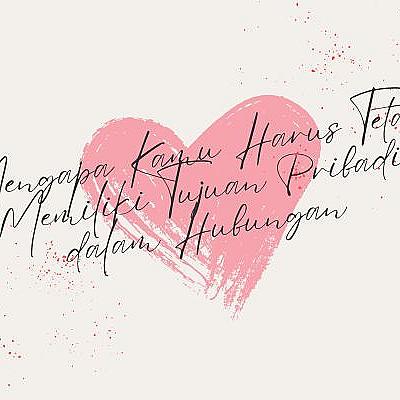 Mengapa Kamu Harus Teta
Memiliki Tujuan Pribadi
dalam Hubungan